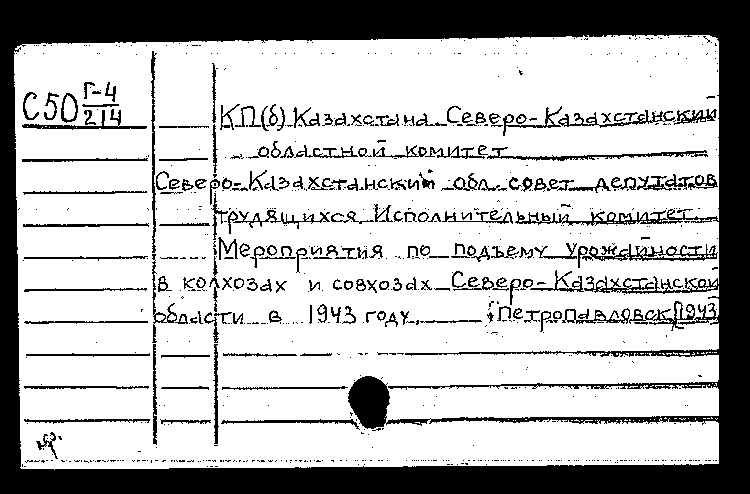 С50 Г-4
214
КП(б) Казахстана. Северо-Казахстанский
областной комитет
Северо-Казахстанский обл. совет депутатов
трудящихся Исполнительный комитет.
Мероприятия по подъему урожайности
в колхозах и совхозах Северо-Казахстанской
области в 1943 году. [Петропавловск, 1943